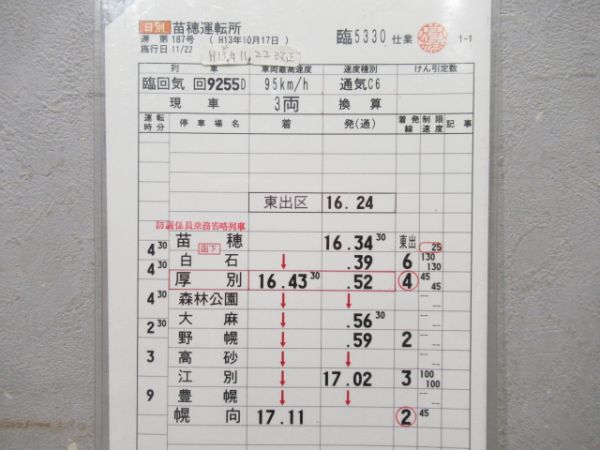 日別 苗穂運転所
運 第 187号 ( H13年10月17日 )
施行日 11/22
臨5330 仕業
1-1
列 車 車両最高速度 速度種別 けん引定数
臨回気 回9255D 95km/h 通気C6
現 車 3両 換 算
運転時分 停車場名 着 発(通) 着発線 制限速度 記事
東出区 16.24
防護係員乗務省略列車
苗 穂 16.34 30 東出 25
4 30
白 石 ↓ .39 6 130 130
4 30
厚 別 16.43 30 .52 4 45 45
森林公園 ↓ ↓ -- --
4 30
大 麻 ↓ .56 30 -- --
2 30
野 幌 ↓ .59 2 -- --
3
高 砂 ↓ ↓ -- --
江 別 ↓ 17.02 3 100 100
9
豊 幌 ↓ ↓ -- --
幌 向 17.11 2 45